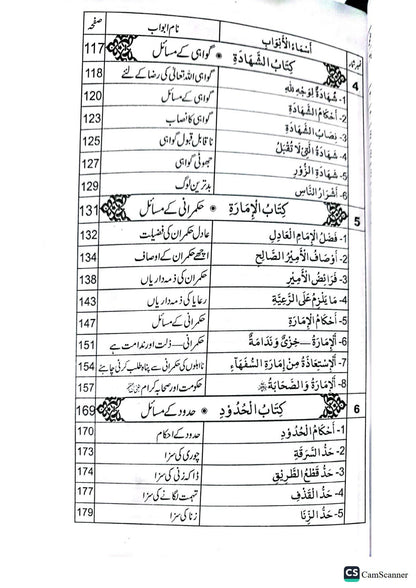 نمبر شمار أسماء الأبواب نام ابواب صفحہ
4 كِتَابُ الشَّهَادَةِ ● گواہی کے مسائل 117
1- شَهَادَةٌ لِوَجْهِ اللهِ گواہی اللہ تعالیٰ کی رضا کے لئے 118
2- أَحْكَامُ الشَّهَادَةِ گواہی کے مسائل 120
3- نِصَابُ الشَّهَادَةِ گواہی کا نصاب 123
4- شَهَادَةُ الَّتِيْ لَا تُقْبَلُ ناقابل قبول گواہی 125
5- شَهَادَةُ الزُّوْرِ جھوٹی گواہی 127
6- أَشْرَارُ النَّاسِ بدترین لوگ 129
5 كِتَابُ الْإِمَارَةِ ● حکمرانی کے مسائل 131
1- فَضْلُ الْإِمَامِ الْعَادِلِ عادل حکمران کی فضیلت 132
2- أَوْصَافُ الْأَمِيْرِ الصَّالِحِ اچھے حکمران کے اوصاف 134
3- فَرَائِضُ الْأَمِيْرِ حکمران کی ذمہ داریاں 138
4- مَا يَلْزَمُ عَلَى الرَّعِيَّةِ رعایا کی ذمہ داریاں 143
5- أَحْكَامُ الْإِمَارَةِ حکمرانی کے مسائل 147
6- أَلْإِمَارَةُ—خِزْيٌ وَنَدَامَةٌ حکمرانی—ذلت اور ندامت ہے 151
7- أَلْاِسْتِعَاذَةُ مِنْ إِمَارَةِ السُّفَهَاءِ نااہلوں کی حکمرانی سے پناہ طلب کرنی چاہئے 154
8- أَلْإِمَارَةُ وَالصَّحَابَةُ حکومت اور صحابہ کرام 157
6 كِتَابُ الْحُدُوْدِ ● حدود کے مسائل 169
1- أَحْكَامُ الْحُدُوْدِ حدود کے احکام 170
2- حَدُّ السَّرَقَةِ چوری کی سزا 173
3- حَدُّ قَطْعِ الطَّرِيْقِ ڈاکہ زنی کی سزا 174
4- حَدُّ الْقَذْفِ تہمت لگانے کی سزا 177
5- حَدُّ الزِّنَا زنا کی سزا 179
CS CamScanner